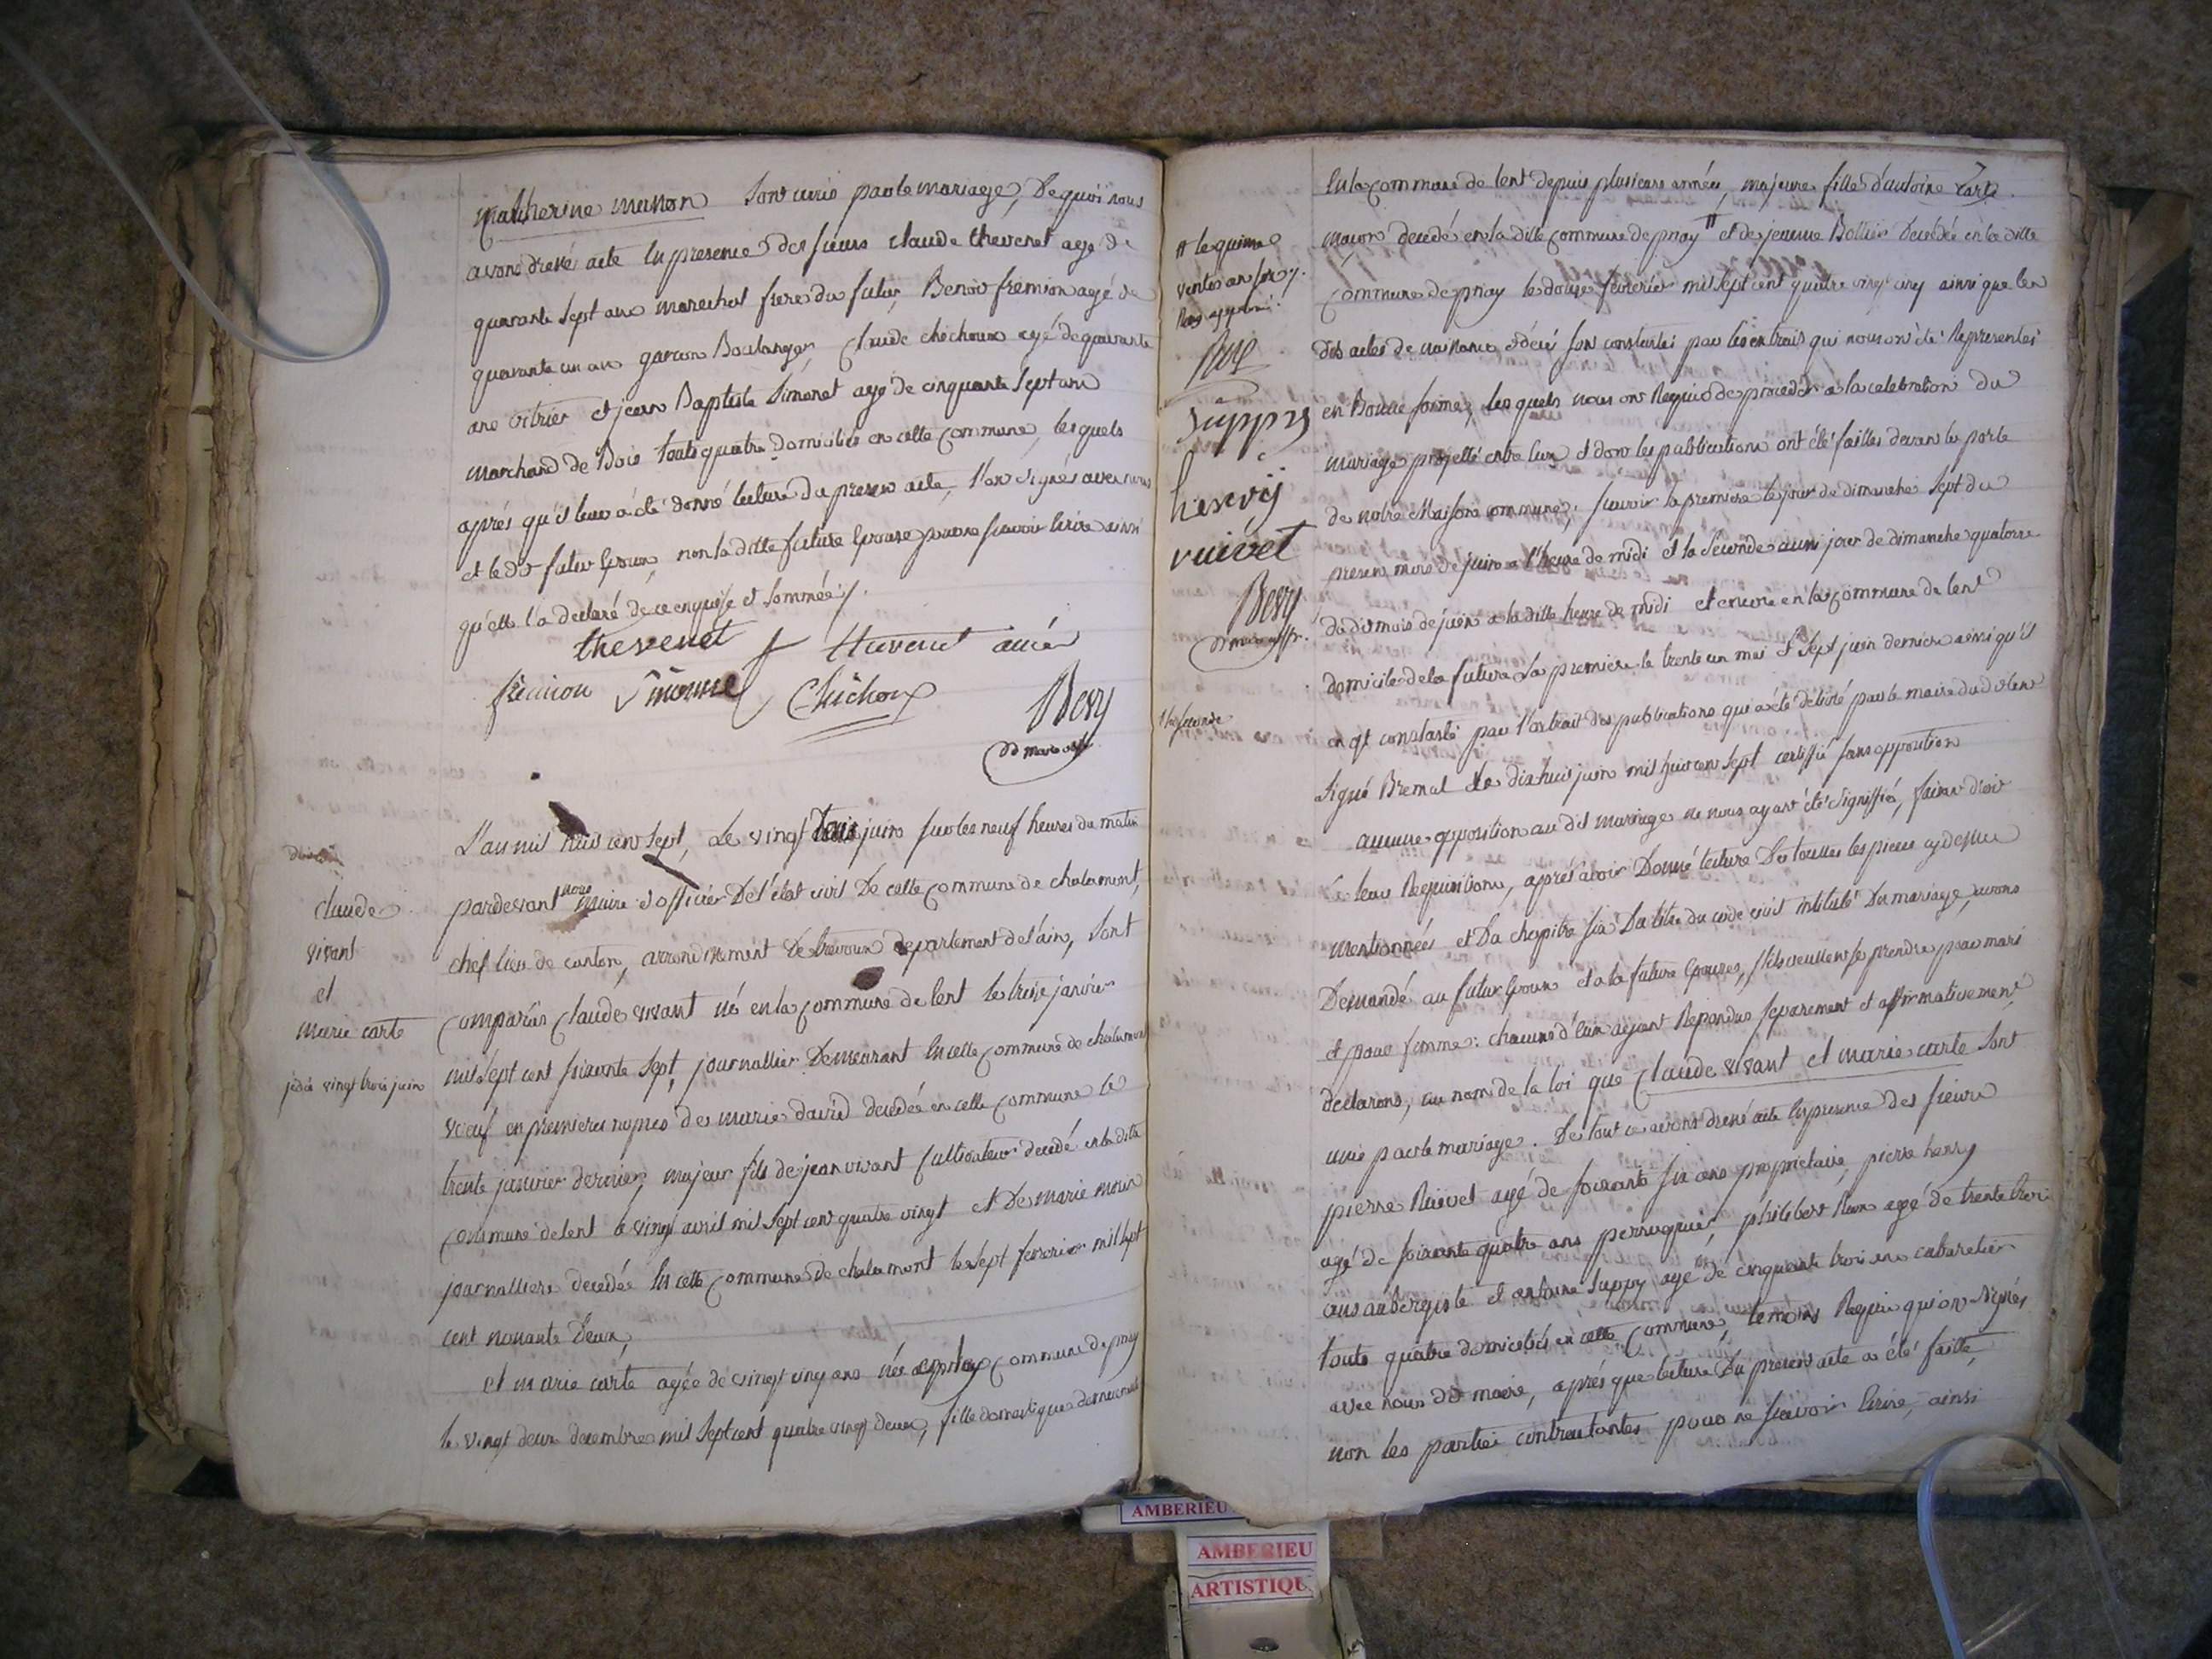 Catherine musson sont unis par le mariage, De quoi nous
avons dressé acte En presence des sieurs claude thevenet agé de
quarante sept ans marechal frere du futur, Benoit fremion agé de
quarante un ans garçon Boulanger, Claude chichoux agé de quarante
ans vitrier et jean Baptiste Simonet agé de cinquante sept ans
marchand de Bois touts quatre domiciliés en cette Commune, les quels
aprés qu'il leur a été donné lecture du present acte, l'on signés avec nous
et le dit futur Epoux, non la ditte future Epouse pour ne scavoir Ecrire ainsi
qu'elle l'a declaré de ce enquise et sommée ./.
thevenet thevenet ainé
fremion Simonnet Chichoux
Bery
dt maire
claude
vivant
et
marie carte
du vingt trois juin
L'an mil huit cent sept, Le vingt trois juin sur les neuf heures du matin
pardevant nous maire et officier De l'état civil De cette Commune de chalamont,
chef lieu de canton, arrondissement De trevoux departement de l'ain, sont
Comparus Claude vivant né en la Commune de lent le treize janvier
mil sept cent soixante sept, journallier Demeurant En cette Commune de chalamont
veuf en premieres nopces de marie david decedée en cette Commune le
trente janvier dernier, majeur fils de jean vivant Cultivateur decedé en la ditte
Commune de lent le vingt avril mil sept cent quatre vingt et De marie
journalliere decedée En cette Commune de chalamont le sept fevrier mil sept
cent nonante Deux,
et marie carte agée de vingt cinq ans née Commune de priay
le vingt deux decembre mil sept cent quatre vingt deux, fille domestique demeurante
7
En la Commune de lent depuis plusieurs années, majeure fille d'antoine Carte
maçon decedé en la ditte Commune de priay # et de jeanne Bollier Decedée en la ditte
Commune de priay le douze fevrier mil sept cent quatre vingt cinq ainsi que les
dits actes de naissance et décés sont constatés par les extraits qui nous ont été Representés
en Bonne forme, les quels nous ont Requis de proceder a la celebration du
mariage projetté entre Eux et dont les publications ont été faittes devant la porte
de notre Maison commune; scavoir la premiere le jour de dimanche sept du
present mois de juin a l'heure de midi et la seconde aussi jour de dimanche quatorze
du dit mois de juin a la ditte heure de midi et encore en la Commune de lent
domicile de la future la premiere le trente un mai et sept juin dernier ainsi qu'il
en est constaté par l'extrait des publications qui a été delivré par le maire du dit lent
signé Bremal le dix huit juin mil huit cent sept certiffié sans opposition
aucune opposition au dit mariage ne nous ayant été signiffiée, faisant droit
a leur Requisition, aprés avoir Donné lecture De touttes les pieces cy dessus
mentionnées et Du chapitre six Du titre du code civil intitulé Du mariage, avons
Demandé au futur Epoux et a la future Epouse, s'ils veullent se prendre pour mari
et pour femme: chacun d'eux ayant Repondus separement et affirmativement
declarons, au nom de la loi que Claude vivant et marie carte sont
unis par le mariage. De tout ce avons dressé acte En presence des sieurs
pierre Ruivet agé de soixante six ans proprietaire, pierre henry
agé de soixante quatre ans perruquier, philibert agé de trente trois
ans aubergiste et antoine Suppy agé de cinquante trois ans cabaretier
touts quatre domiciliés en cette Commune, temoins Requis qui ont signés
avec nous dit maire, aprés que lecture Du present acte a été faitte,
non les parties contractantes pour ne scavoir Ecrire, ainsi
# le quinze
ventos an six ./.
Suppy
henry
ruivet
Bery
dt maire
et la seconde
AMBERIEU
AMBERIEU
ARTISTIQU